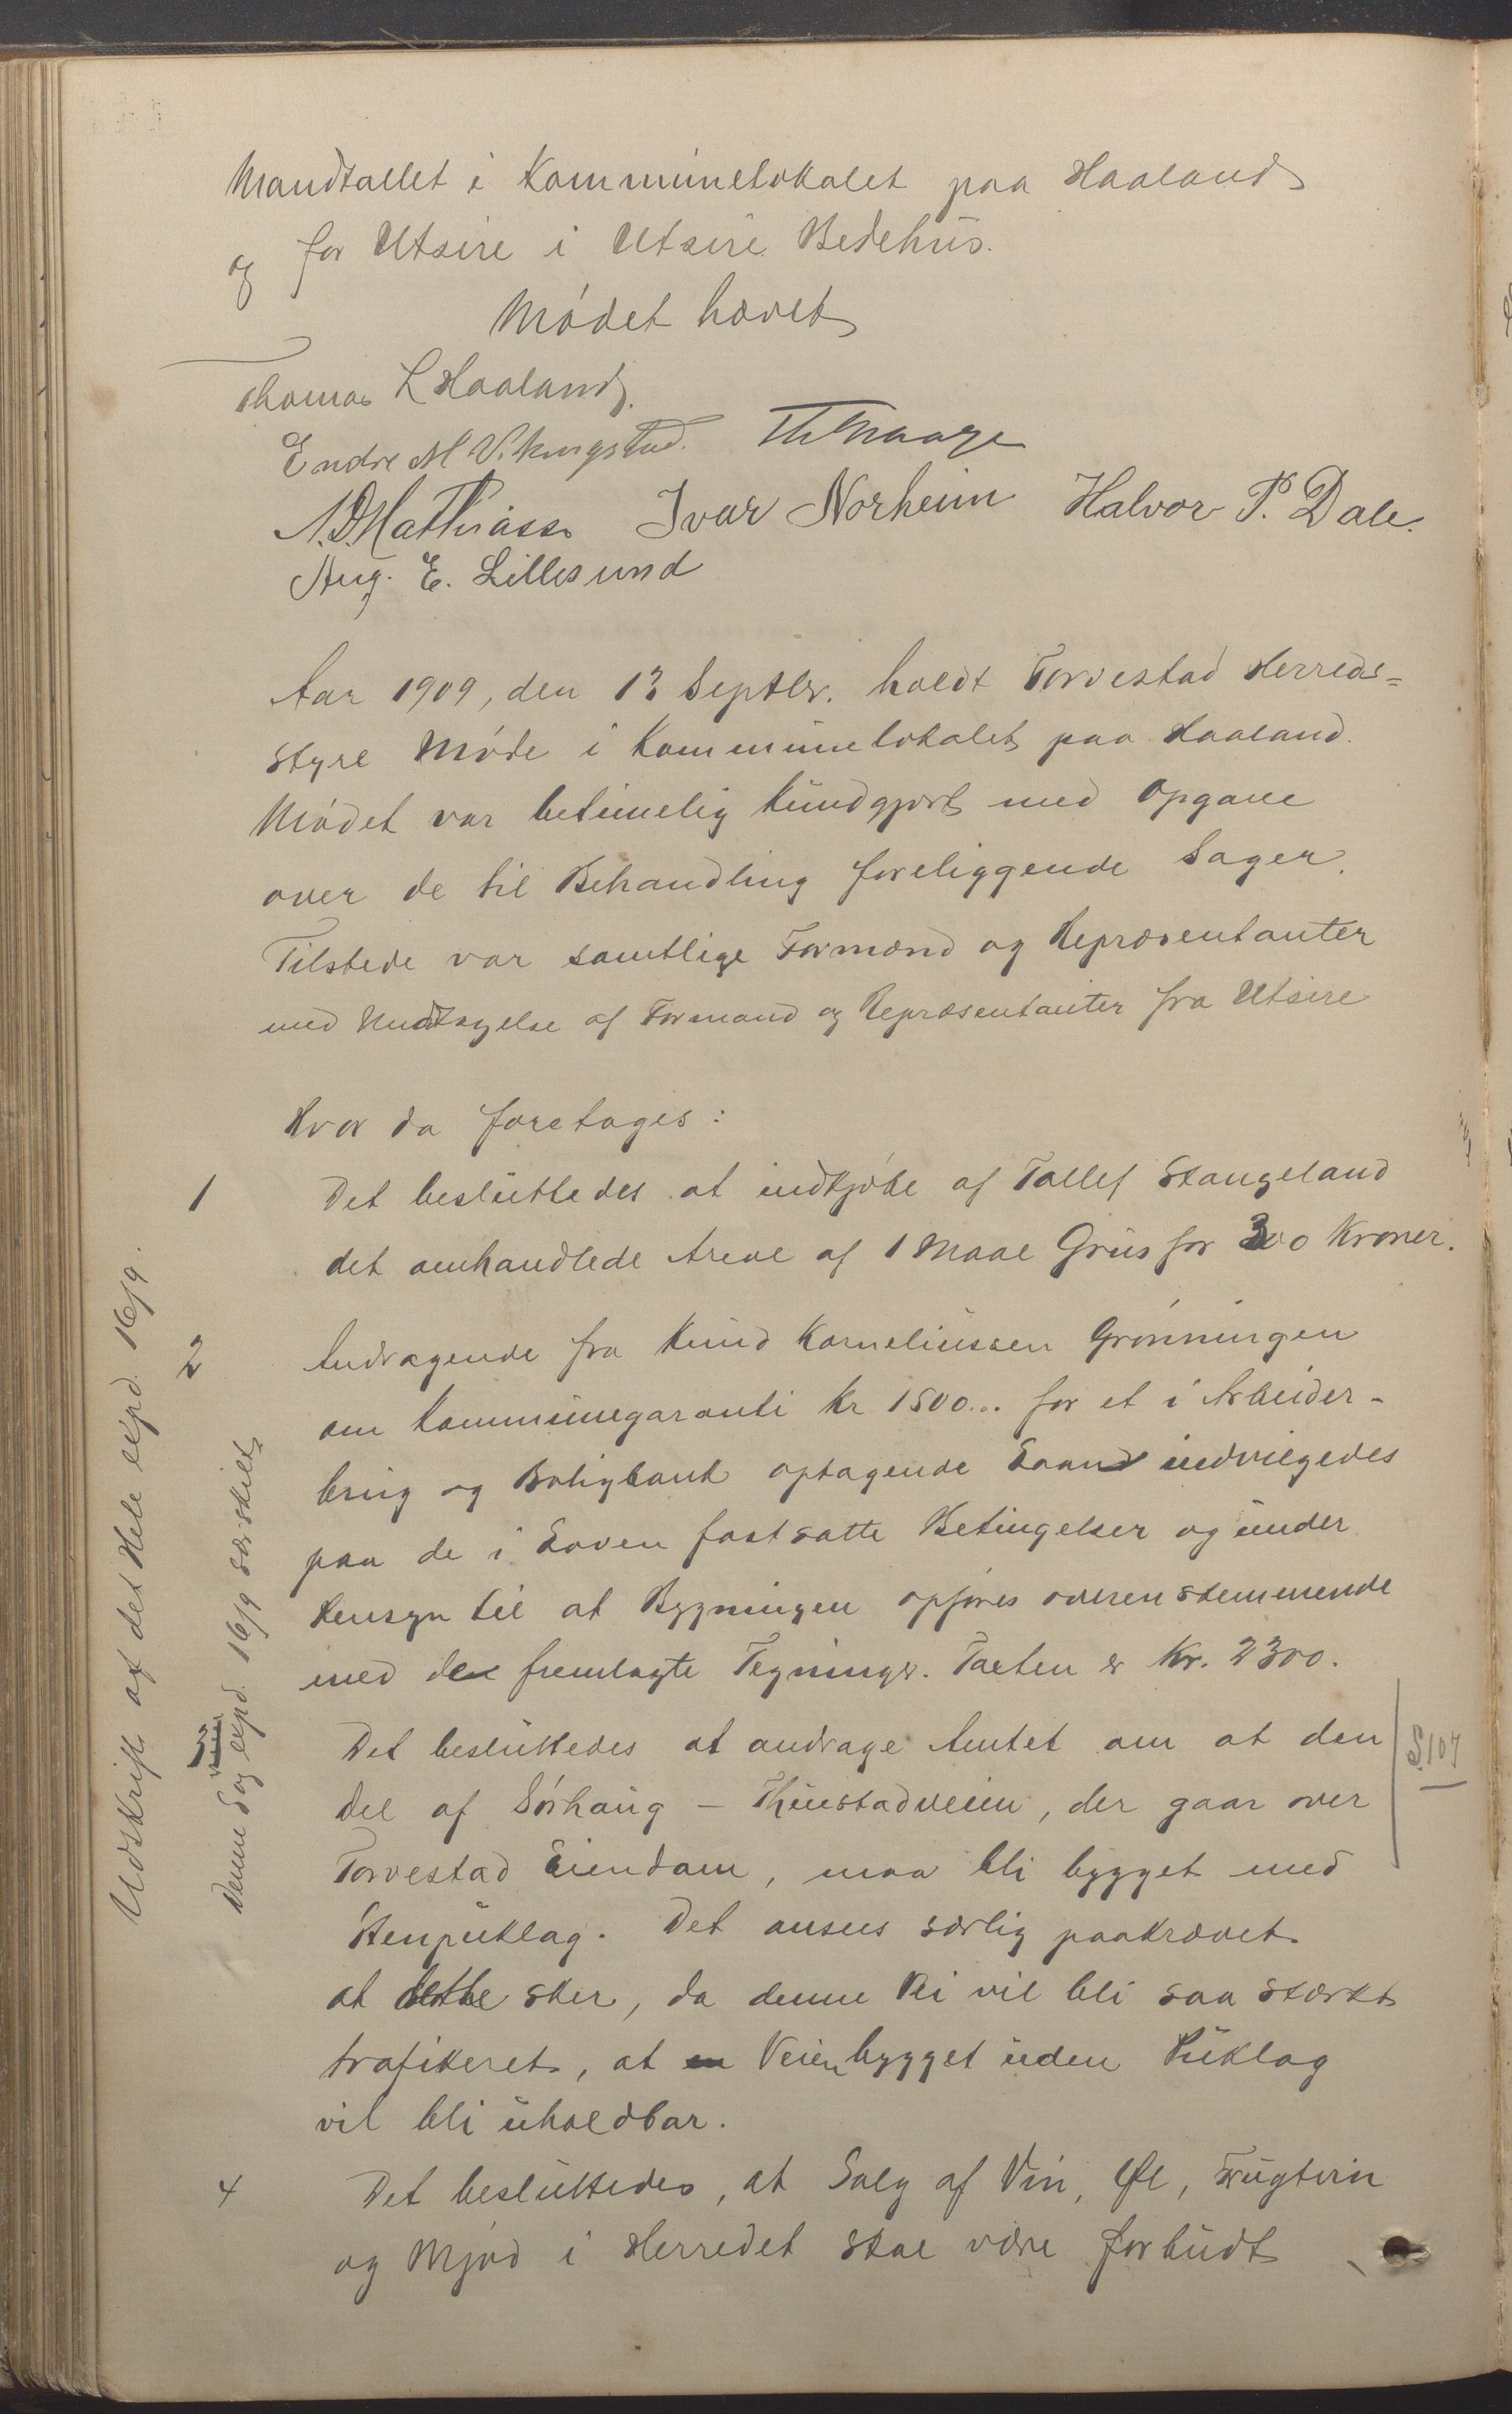 Mandtallet i Kommunelokalet paa Haaland
og for Utsire i Utsire Bedehus.
Mødet hævet
Thomas L Haaland.
Endre M Vikingstad. Th Waage
N. D. Mathiass Ivar Norheim Halvor P. Dale.
Aug. E. Lillesund
Aar 1909, den 13 Septbr. holdt Torvestad Herreds=
styre Møde i Kommunelokalet paa Haaland.
Mødet var betimelig kundgjort med Opgave
over de til Behandling foreliggende Sager.
Tilstede var samtlige Formænd og Repræsentanter
med Undtagelse af Formand og Repræsentanter fra Utsire
Hvor da foretages:
1 Det besluttedes at indkjøbe af Tallef Stangeland
det omhandlede Areal af 1 Maal Grus for 300 Kroner.
2 Andragende fra Knud Korneliussen Grønningen
om Kommunegaranti Kr 1500... for et i Arbeider-
brug og Boligbank optagende Laan indvilgedes
paa de i Loven fastsatte Betingelser og under
Hensyn til at Bygningen opføres overensstemmende
med den fremlagte Tegninger. Taxten er Kr. 2300.
3 Det besluttedes at andrage Amtet om at den
Del af Sørhaug - Thuestadveien, der gaar over
Torvestad Eiendom, maa bli bygget med
Stenpuklag. Det ansees særlig paakrævet
at dette sker, da denne Vei vil bli saa stærkt
trafikeret, at en Veien bygget uden Puklag
vil bli uholdbar.
4 Det besluttedes, at Salg af Vin, Øl, Frugtvin
og Mjød i Herredet skal være forbudt
Udskrift af det Hele expd. 16/9.
Denne Sag expd. 16/9 særskilt
S. 107